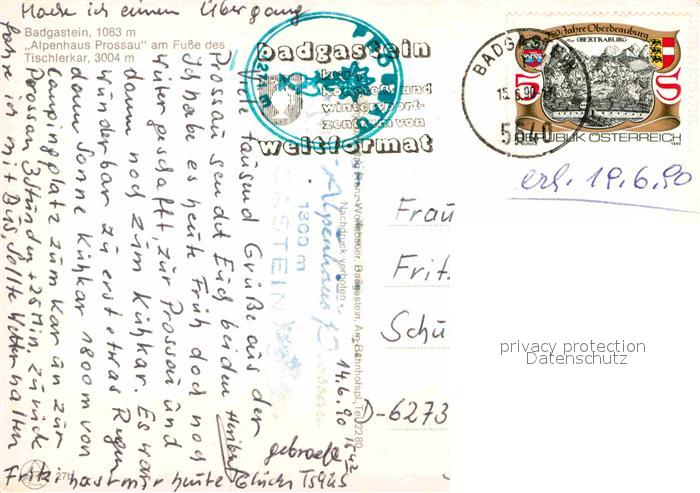 Mache ich einen Übergang
Badgastein, 1083 m
„Alpenhaus Prossau" am Fuße des
Tischlerkar, 3004 m
Viele tausend Grüße aus der
Prossau sendet Euch beiden
Ich habe es heute Früh doch noch
weiter geschafft, zur Prossau und
dann noch zum Kühkar. Es war
wunderbar zu erst etwas Regen
dann Sonne Kühkar 1800 m von
Campingplatz zum Kar an zur
Prossau 3 Stunden + 25 Min. zurück
fahre ich mit Bus, sollte Wetter halten
Fritzi hast mir heute Glück
gebracht
14.6.90
badgastein
kur
kongress und
wintersport-
zentrum von
weltformat
Alpenhaus Prossau
GASTEIN
1300 m
Nachdruck verboten
Badgastein, Am Bahnhofspl., Tel. 2280
BADGAS
15.6.90
5640
Jahre Oberdrauburg
OBERTRABURG
5 S
REPUBLIK ÖSTERREICH
1990
erh. 19.6.90
Frau
Frit
Schu
D-6273
privacy protection
Datenschutz